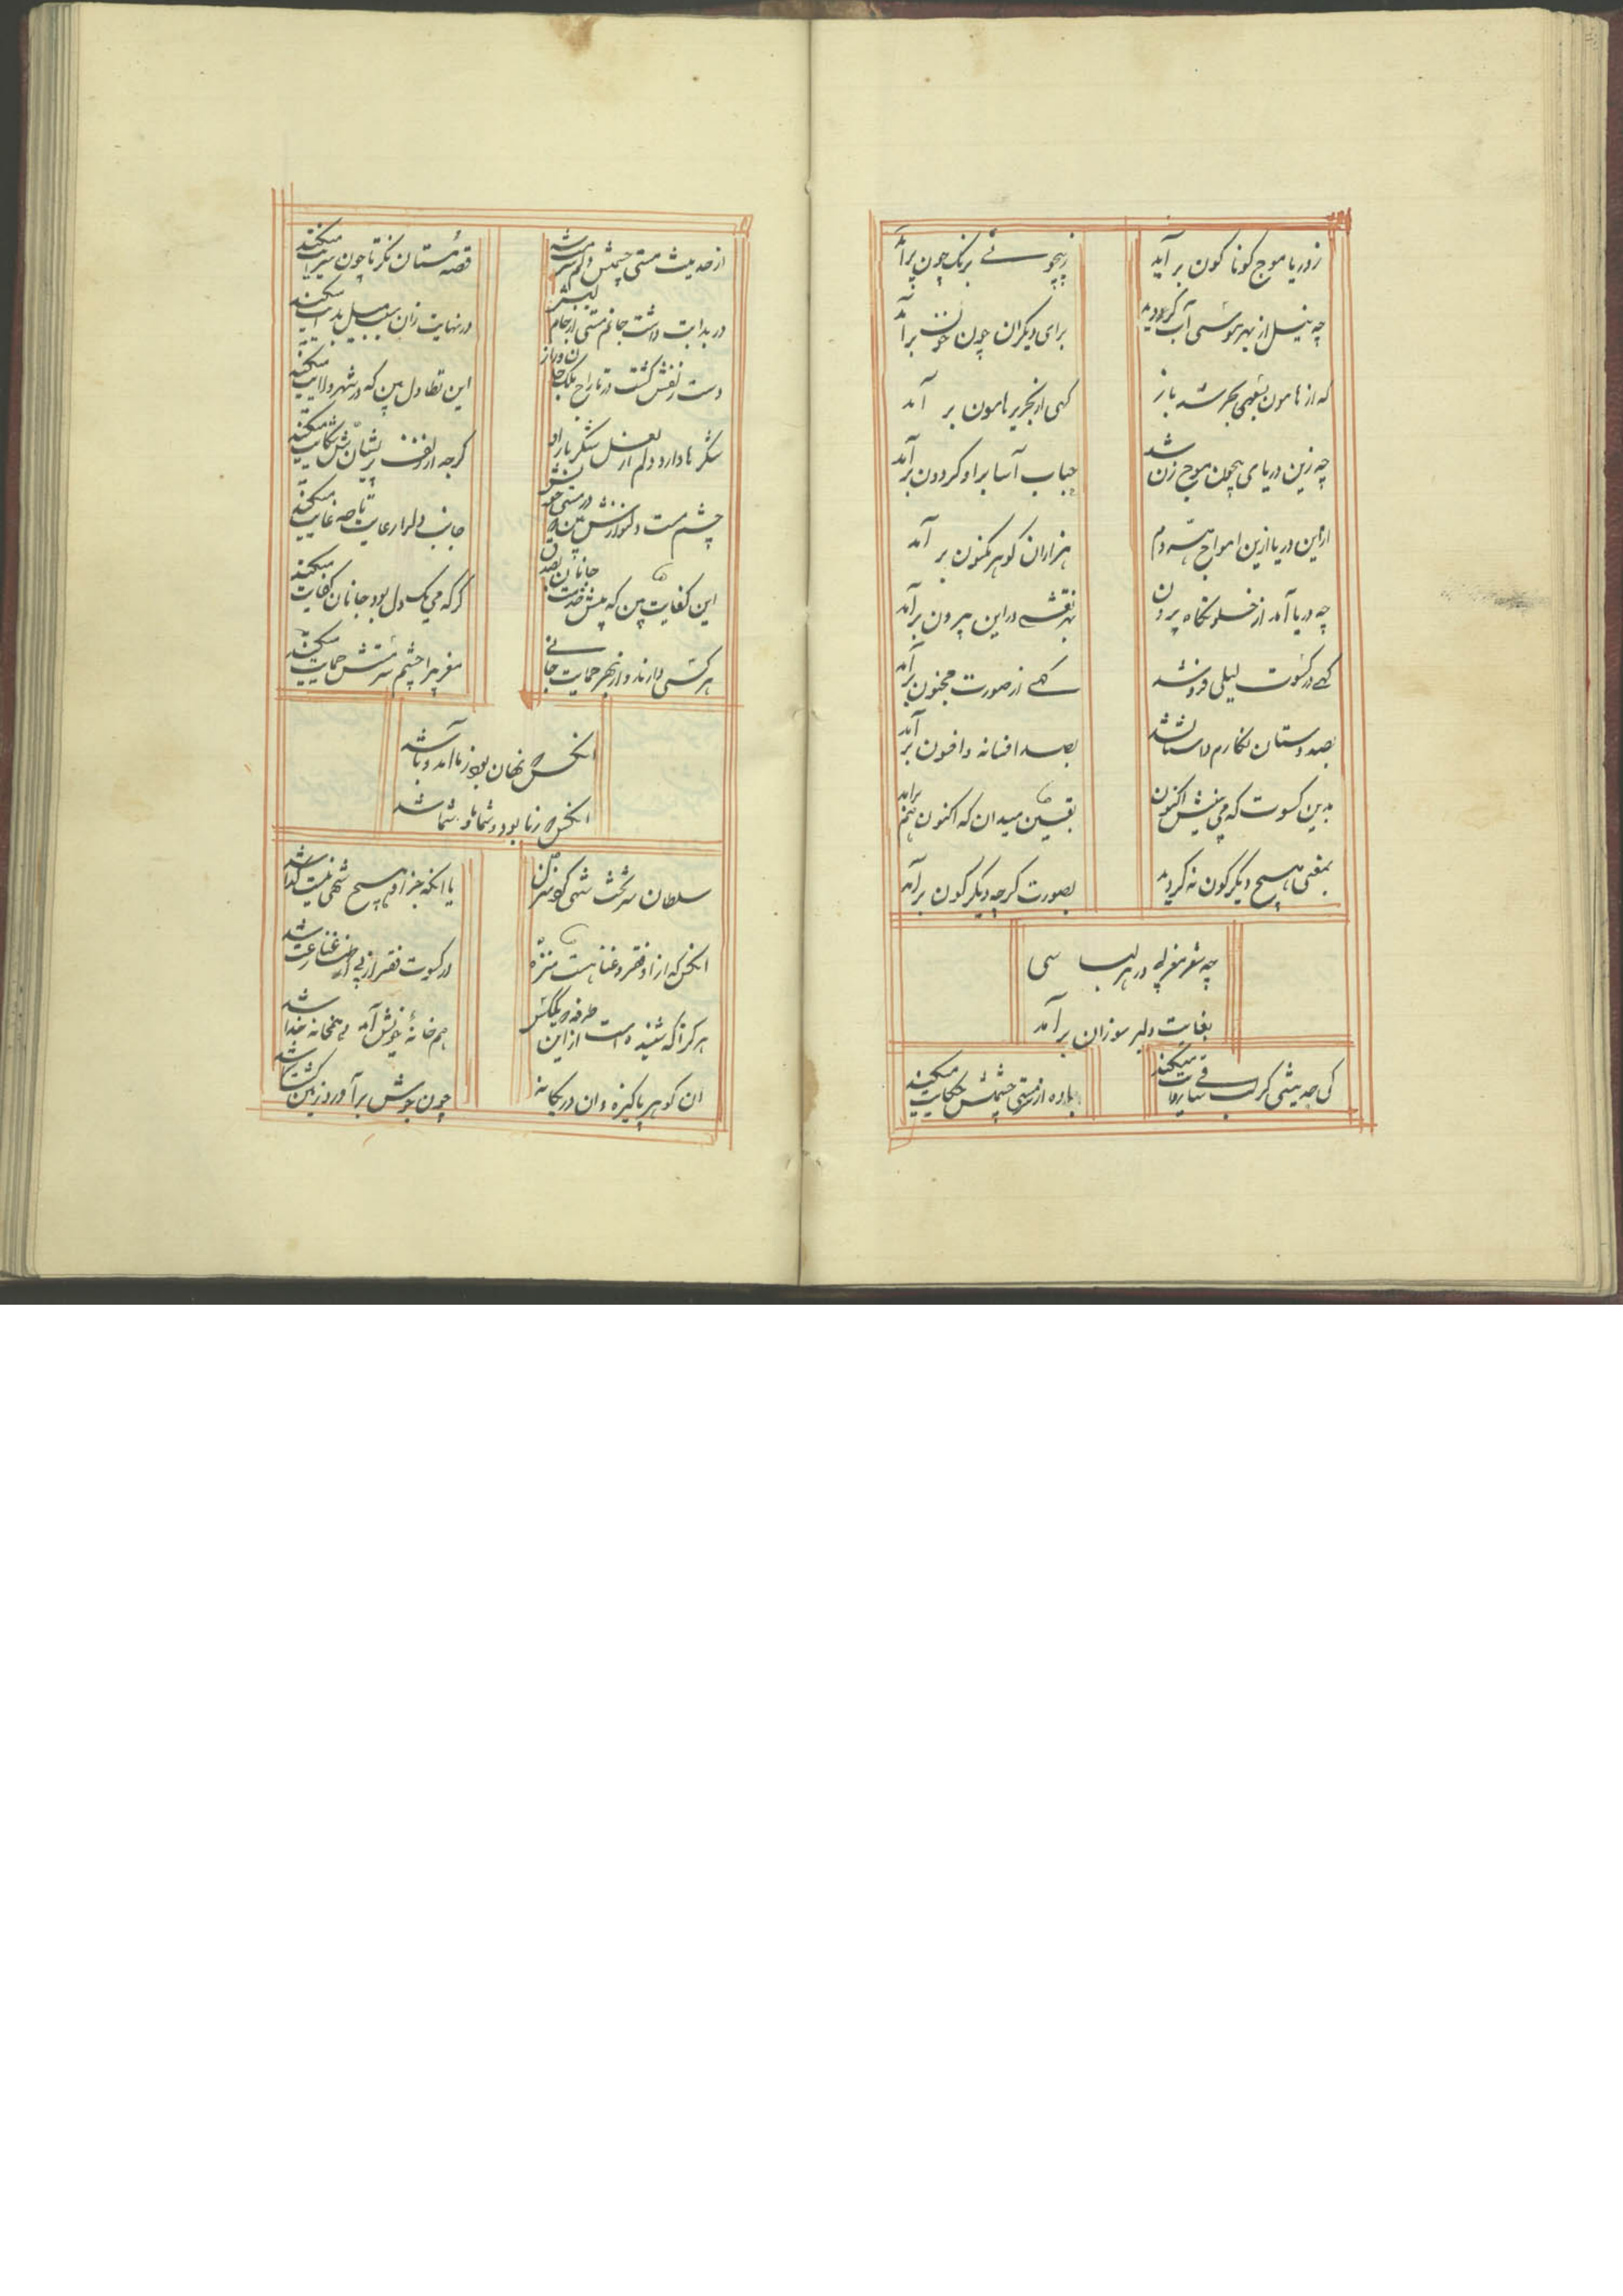 زدریا موج کوناکون برآید
زبیچونے برنک چون برآمد
چه نیل از بهر موسی آب کردید
برای دیکران چون خون برآمد
که از هامون بسوی بحر شد باز
کهی از بحر بر هامون بر آمد
چه زین دریای بیچون موج زن شد
حباب آسا براو کردون برآمد
ازاین دریا ازین امواج هردم
هزاران کوهر مکنون بر آمد
چه دریا آمد از خلوتکاه بیرون
بهر نقشے دراین بیرون برآمد
کهے در کسوت لیلی فروشد
کهے از صورت مجنون برآمد
بصد دستان نکارم داستان شد
بصد افسانه و افسون برآمد
بدین کسوت که می بینیش اکنون
یقین میدان که اکنون هم برامد
بمعنی هیچ دیکرکون نه کردید
بصورت کرچه دیکرکون برآمد
چه شعر مغربی در هر لباسی
بغایت دلبر سوزان برآمد
کی حدیثی کر لب ساقی روایت میکند
باده از مستی چشمش حکایت میکند
از حدیث مستی چشمش دلم سر مست شد
قصهٔ مستان نکر تا چون سرایت میکند
در بدایت داشت جانم مستی از جام لبش
در نهایت زان سبب میل بدایت میکند
دست زلفش کشت در تاراج ملک جان دراز
این تطاول بین که در شهر ولایت میکند
شکرها دارد دلم از لعل شکر بار او
کرچه از زلف پریشانش شکایت میکند
چشم مست دلنوازش بین که در مستی خود
جانب دلرا رعایت تا چه غایت میکند
این کفایت بین که پیش خدمت جانان بصدق
کرکه می یک دل بود جانان کفایت میکند
هر کسی دارند و از بهر حمایت جانے
مغربیرا چشم سرمستش حمایت میکند
انکس که نهان بود زما آمد و ماشد
انکس که زما بود و شما ما و شما شد
سلطان سر تخت شهی کرد تنزل
یا انکه جز او هیچ شهی نیست کدا شد
انکس که از او فقر و غنا هست منزه
در کسوت فقر از پی اظهار غنا شد
هرکز که شنیده است از این طرفه که یککس
هم خانهٔ خویش آمد و هم خانه خدا شد
ان کوهر پاکیزه و ان در یکانه
چون جوش برآورد زمین کشت سما شد